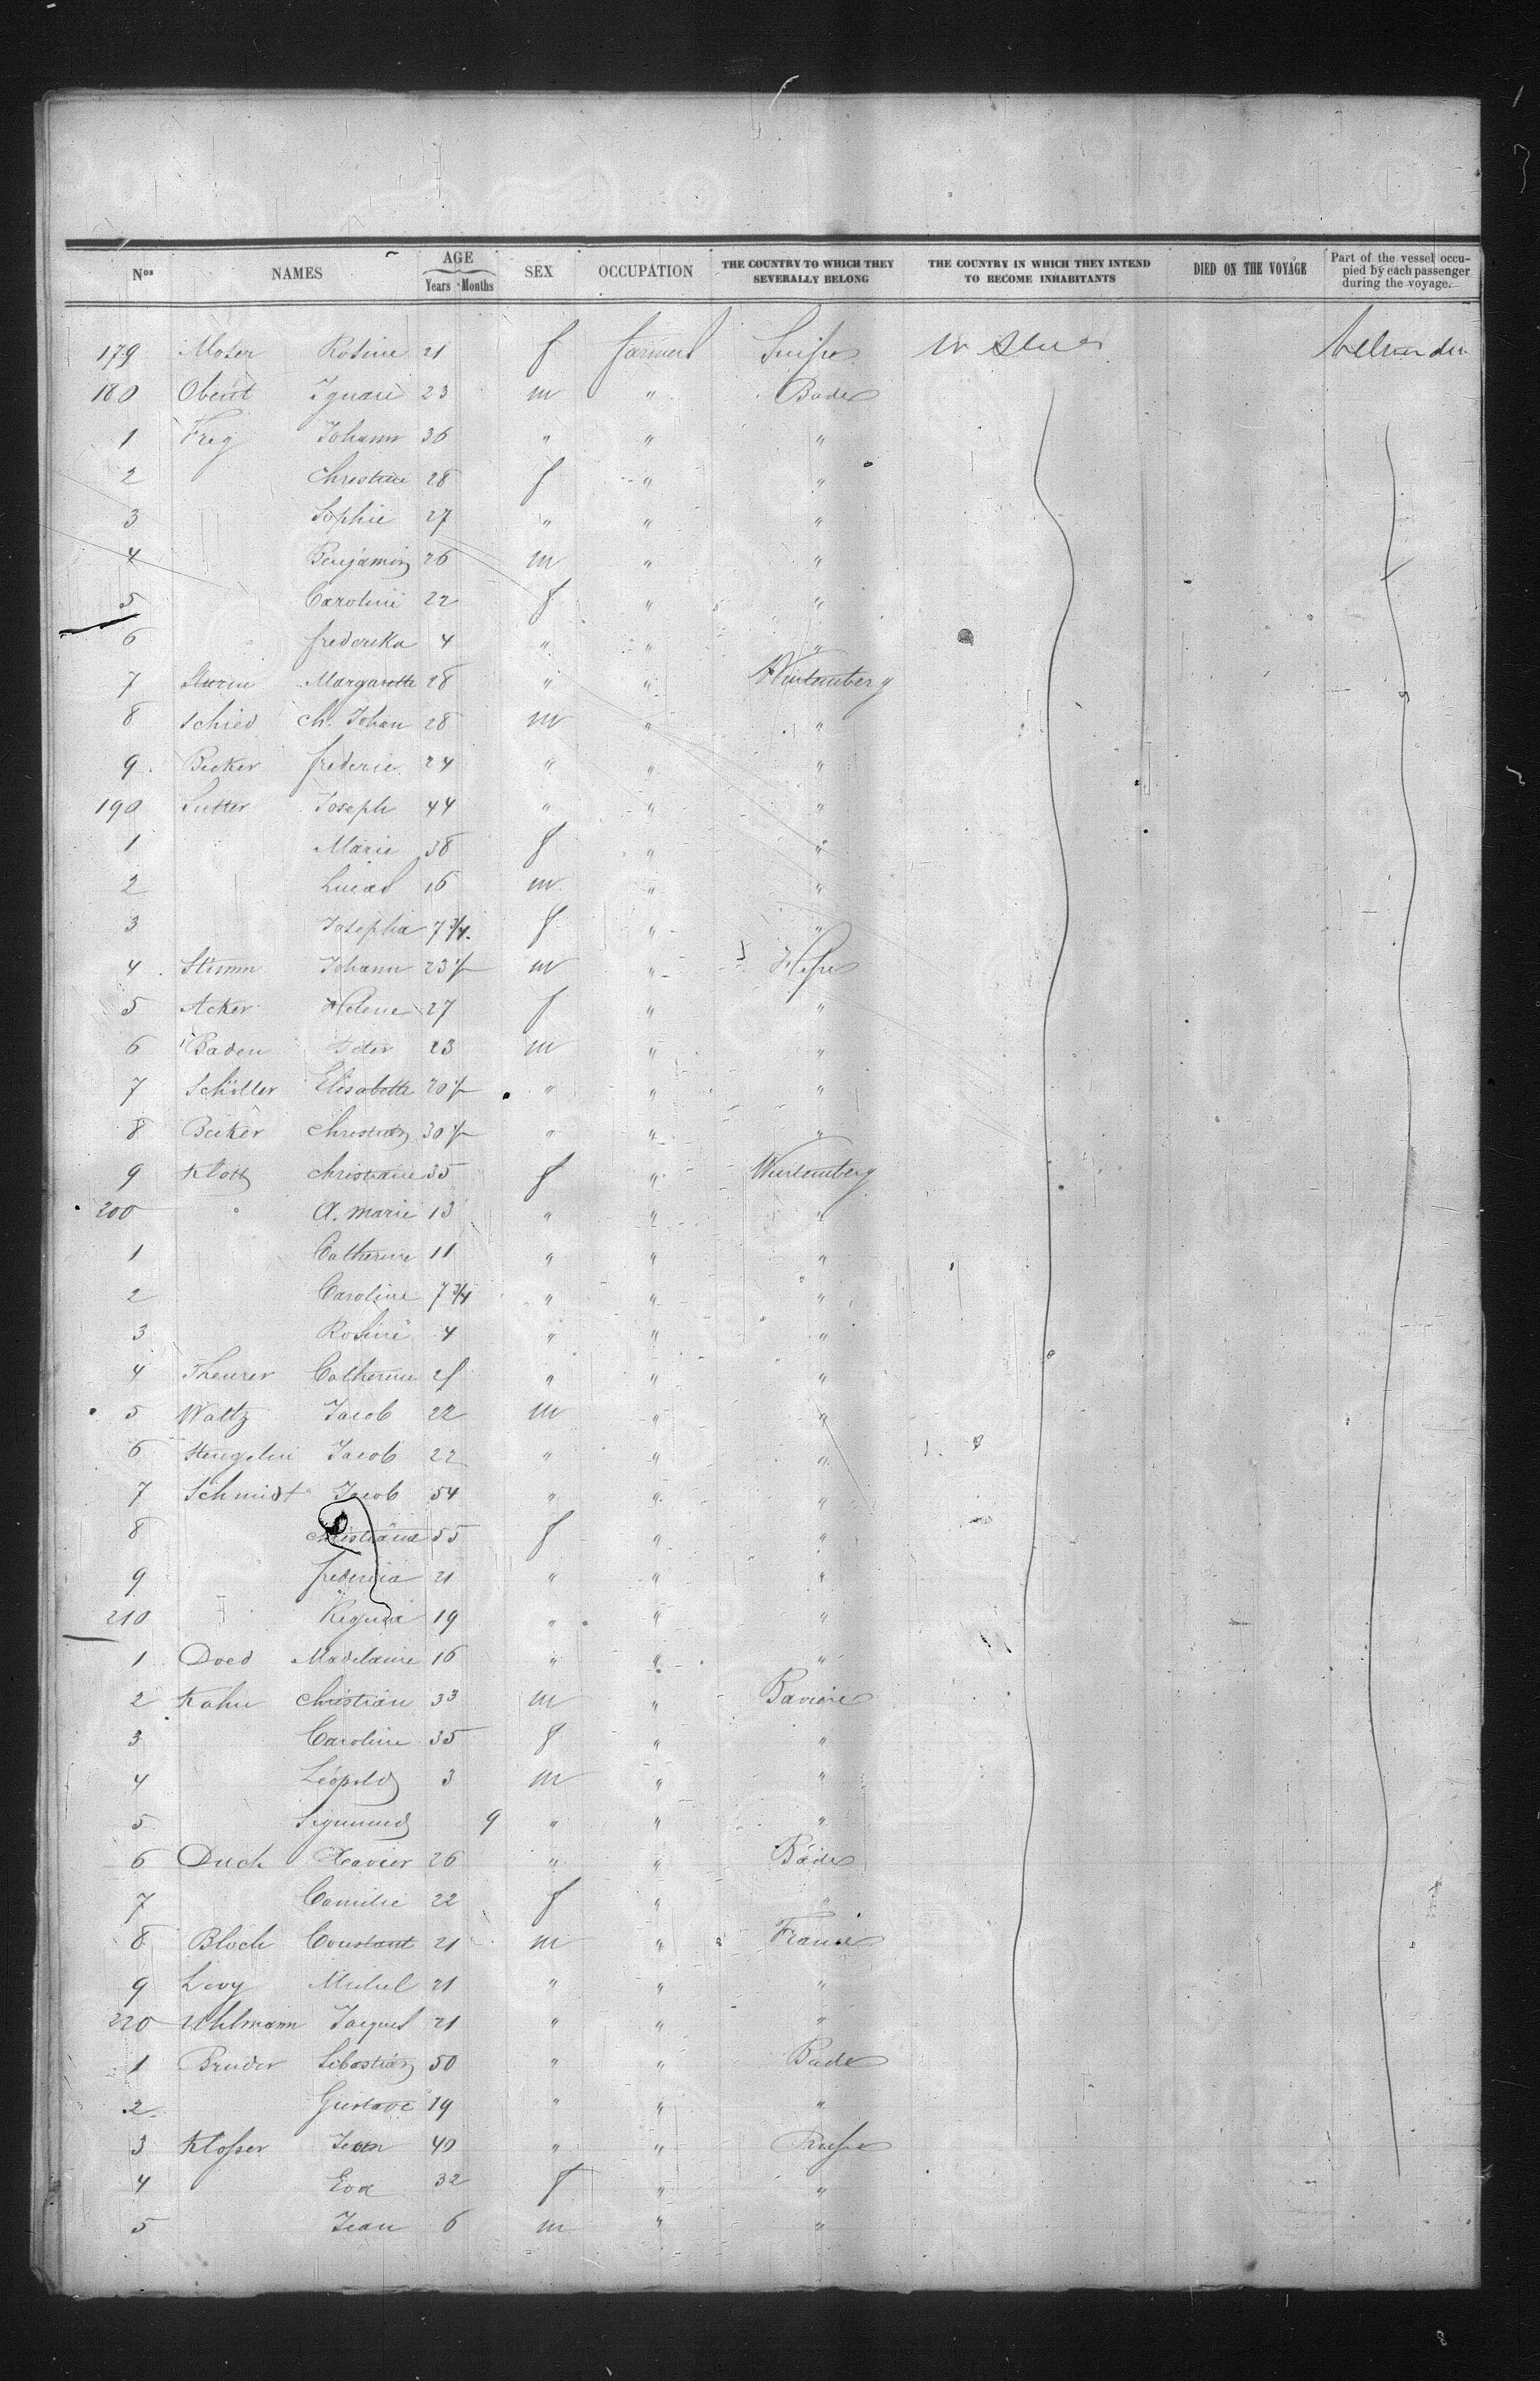 Nos NAMES AGE Years Months SEX OCCUPATION THE COUNTRY TO WHICH THEY SEVERALLY BELONG THE COUNTRY IN WHICH THEY INTEND TO BECOME INHABITANTS DIED ON THE VOYAGE Part of the vessel occupied by each passenger during the voyage.
179 Moser Rosine 21 f farmers Suisse
180 Oberst Ignace 23 m " Bade
1 Frey Johann 36 " " "
2 Christine 28 f " "
3 Sophie 27 " " "
4 Benjamin 26 m " "
5 Caroline 22 f " "
6 frederika 4 " " "
7 Margarette 28 " " Wurtemberg
8 Schied ch. Johan 28 m " "
9 Becker frederic 24 " " "
190 Sutter Joseph 44 " " "
1 Marie 38 f " "
2 Lucas 16 m " "
3 Josepha 7 3/4 f " "
4 Stimm Johann 23 1/2 m " Hesse
5 Acker Helene 27 f " "
6 Baden Peter 23 m " "
7 Schöller Elisabette 20 1/2 " " "
8 Becker Christian 30 1/2 " " "
9 Klotz Christiane 35 f " Wurtemberg
200 A. Marie 13 " " "
1 Catherine 11 " " "
2 Caroline 7 3/4 " " "
3 Rosine 4 " " "
4 Theurer Catherine " " "
5 Waltz Jacob 22 m " "
6 Stengelin Jacob 22 " " "
7 Schmidt Jacob 54 " " "
8 Christiana 55 f " "
9 frederica 21 " " "
210 Regina 19 " " "
1 Doed Madelaine 16 " " "
2 Kahn Christian 33 m " Baviere
3 Caroline 35 f " "
4 Léopold 3 m " "
5 Sigmund 9 " " "
6 Duch Xavier 26 " " Bade
7 Camilie 22 f " "
8 Bloch Constant 21 m " France
9 Levy Michel 21 " " "
220 Uhlmann Jacques 21 " " "
1 Bruder Sebastian 50 " " Bade
2 Gustave 19 " " "
3 Klosser Jean 40 " " Prusse
4 Eva 32 f " "
5 Jean 6 m " "